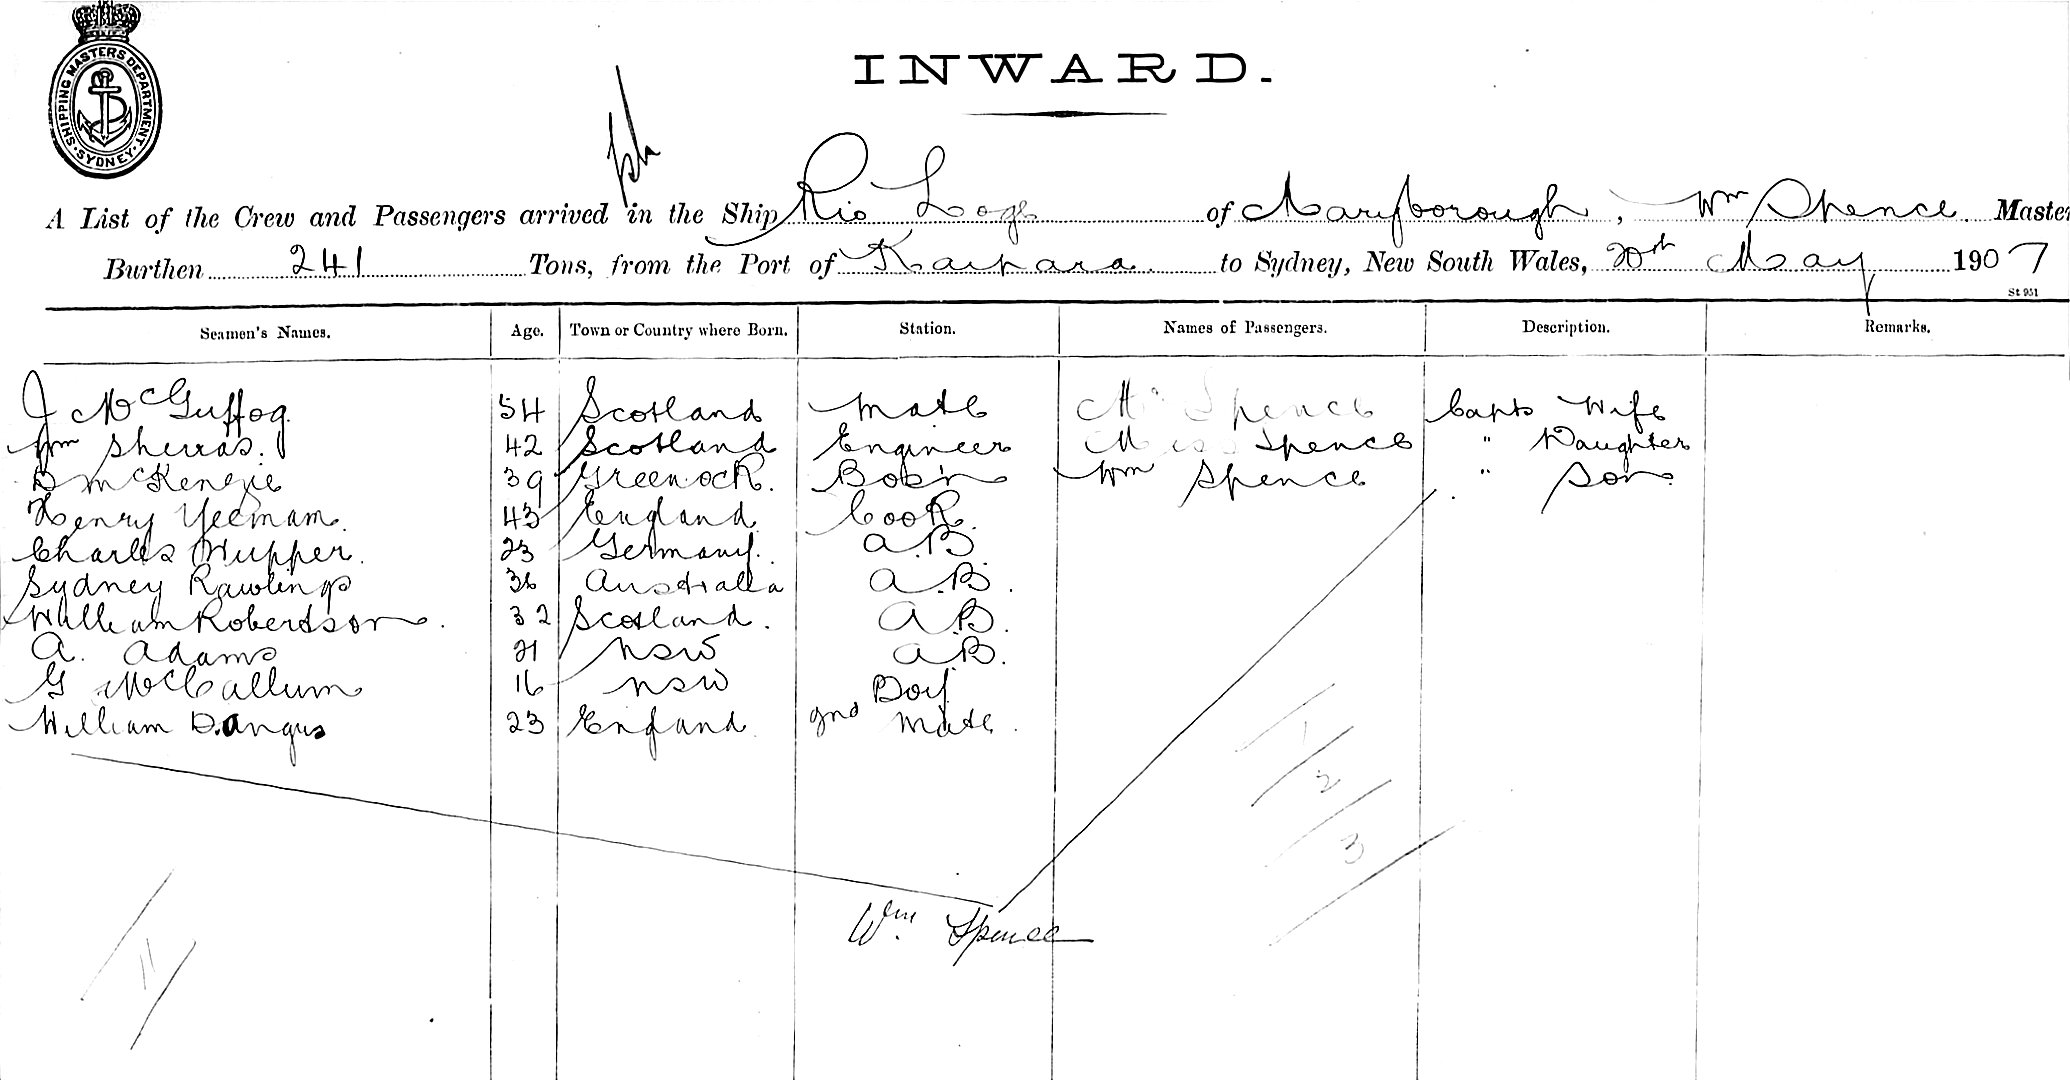 SHIPPING MASTERS DEPARTMENT. SYDNEY.
INWARD.
A List of the Crew and Passengers arrived in the Ship Rio Loge of Maryborough, Wm Spence. Master
Burthen 241 Tons, from the Port of Kaipara to Sydney, New South Wales, 20th May 1907
St 951
Seamen's Names. Age. Town or Country where Born. Station. Names of Passengers. Description. Remarks.
J McGuffog. 54 Scotland Mate Mrs Spence Capts Wife
Wm Sherras. 42 Scotland Engineer Miss Spence " Daughter
D McKenzie 39 Greenock. Bos'n Wm Spence " Son.
Henry Yeemam. 43 England Cook.
Charles Wupper. 23 Germany. A.B.
Sydney Rawlings 36 Australia A.B.
William Robertson. 32 Scotland. A.B.
A. Adams 21 NSW A.B.
G McCallum 16 NSW Boy
William D. Angus 23 England 2nd Mate.
1
2
3
Wm. Spence
11